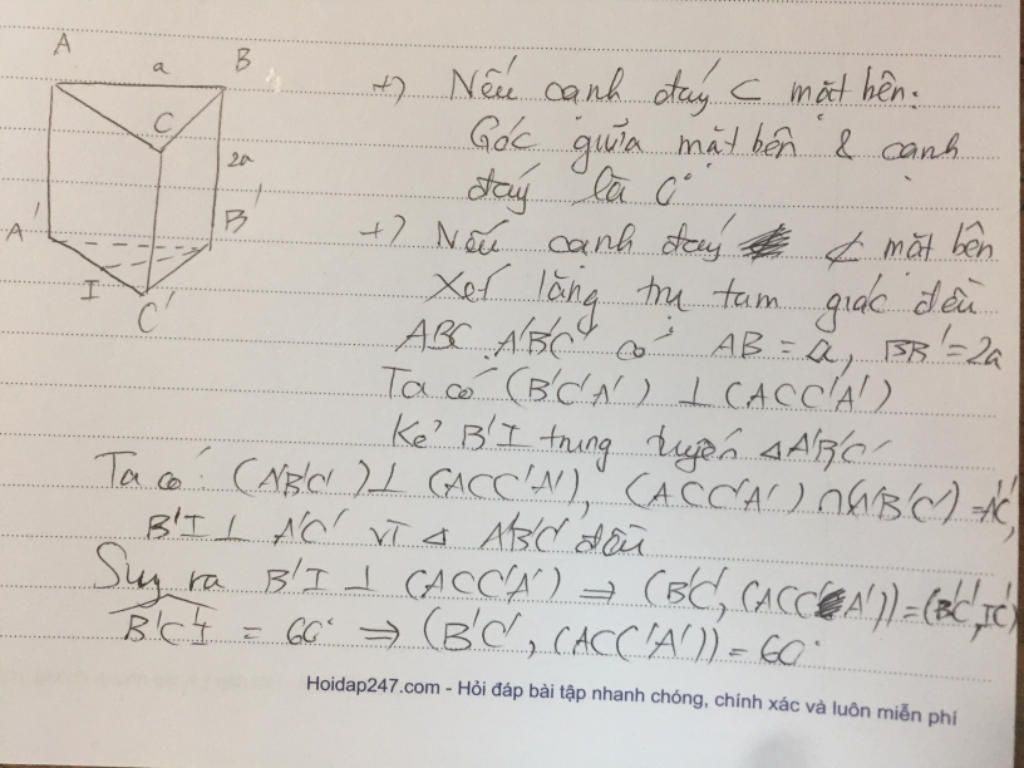 A a B
C
2a
A' B'
I
C'
+) Nếu cạnh đáy ⊂ mặt bên:
Góc giữa mặt bên & cạnh
đáy là 0°
+) Nếu cạnh đáy ⊄ mặt bên
Xét lăng trụ tam giác đều
ABC.A'B'C' có AB = a, BB' = 2a
Ta có (B'C'A') ⊥ (ACC'A')
Kẻ B'I trung tuyến ΔA'B'C'
Ta có: (A'B'C') ⊥ (ACC'A'), (ACC'A') ∩ (A'B'C') = A'C',
B'I ⊥ A'C' vì Δ A'B'C' đều
Suy ra B'I ⊥ (ACC'A') ⇒ (B'C', (ACC'A')) = (B'C', IC')
B'C'I = 60° ⇒ (B'C', (ACC'A')) = 60°
Hoidap247.com - Hỏi đáp bài tập nhanh chóng, chính xác và luôn miễn phí